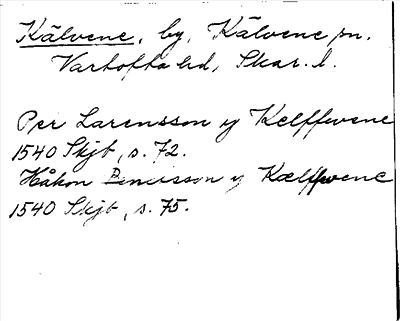 Kälvene, by, Kälvene sn.
Vartofta hd, Skar. l.
Per Larensson y Kelffwene
1540 Skjb, s. 72.
Håkon y Kælffwene
1540 Skjb, s. 75.